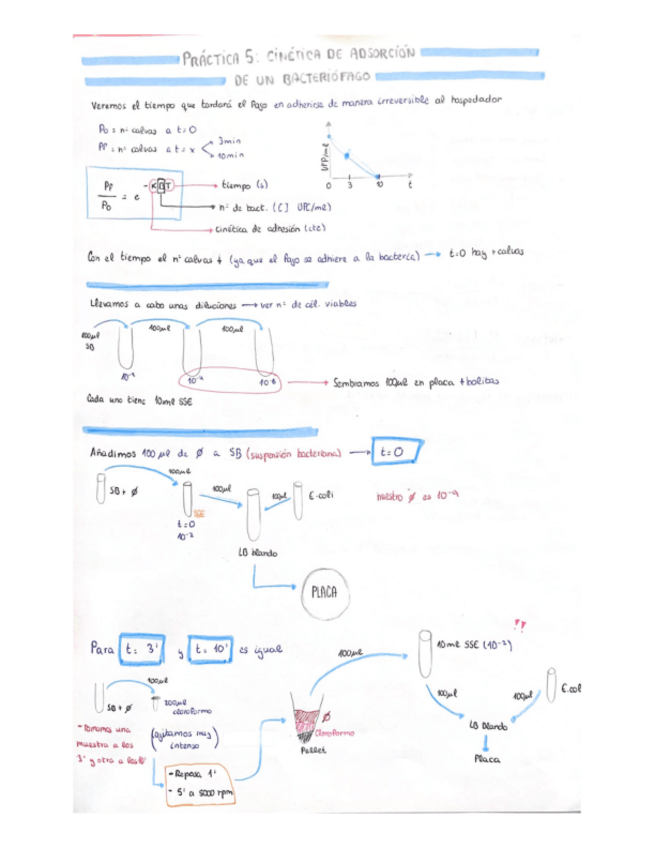 PRÁCTICA 5: CINÉTICA DE ADSORCIÓN
DE UN BACTERIÓFAGO
Veremos el tiempo que tardará el fago en adherirse de manera irreversible al hospedador
P0 = nº calvas a t=0
PF = nº calvas a t=x
3min
10min
UFP/ml
0 3 10 t
PF
P0
= e
-KBT
tiempo (s)
nº de bact. ([] UFC/ml)
cinética de adhesión (cte)
Con el tiempo el nº calvas ↓ (ya que el fago se adhiere a la bacteria) → t=0 hay + calvas
Llevamos a cabo unas diluciones → ver nº de cél. viables
100µl
SB
100µl
100µl
10-2
Sembramos 100µl en placa + bolitas
Cada uno tiene 10ml SSE
Añadimos 100 µl de Ø a SB (suspensión bacteriana) → t=0
100µl
SB + Ø
100µl
100µl
E-coli
nuestro Ø es 10-9
SSE
t=0
10-2
LB blando
PLACA
Para t= 3' y t= 10' es igual
100µl
SB + Ø
200µl
cloroformo
- Tomamos una
muestra a los
3' y otra a los 10'
(agitamos muy
intenso)
- Reposa 1'
- 5' a 5000 rpm
Ø
Cloroformo
Pellet
100µl
!!
10ml SSE (10-2)
100µl
100µl
E.coli
LB blando
Placa